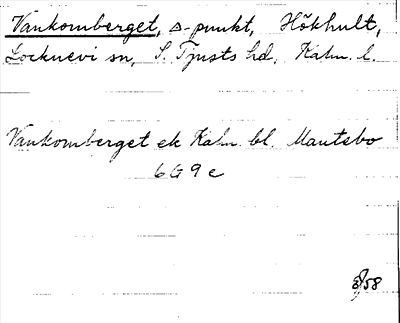 Vankomberget, △-punkt, Hökhult,
Locknevi sn, S. Tjusts hd, Kalm. l.
Vankomberget ek Kalm. bl. Mantebo
6G 9e
58